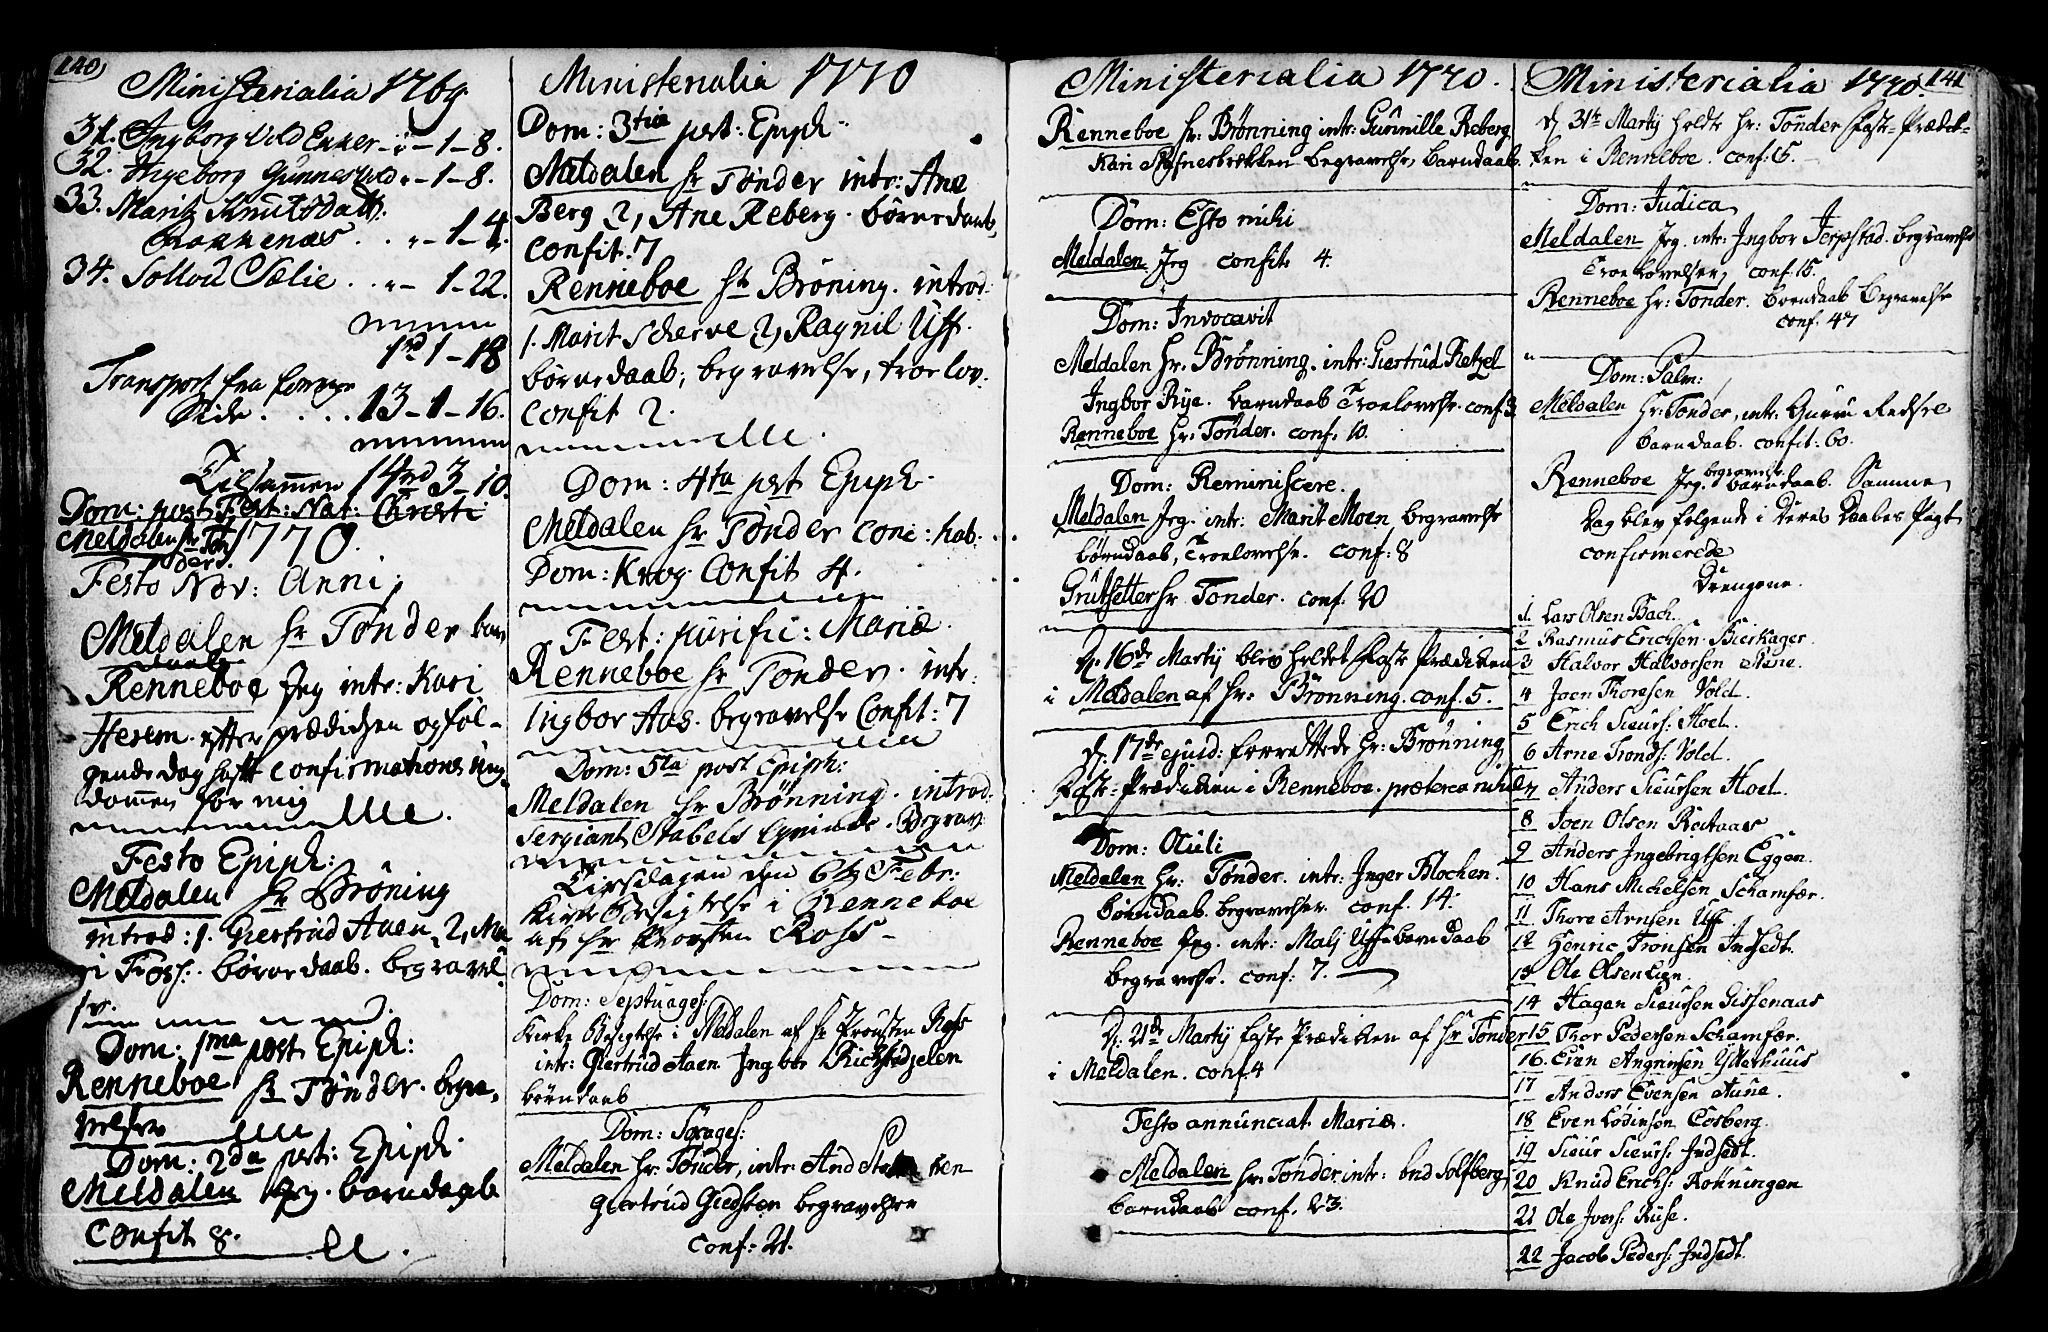 140)
Ministerialia 1769
31. Ingborg Vold Enker - " - 1 - 8.
32. Ingeborg Gunnesvold " - 1 - 8.
33. Marit Knutsdatt:
. . " - 1 - 4.
34. Solloug Sælie . . " - 1 - 22.
1rd 1 - 18
Transport fra forrige
Side . . . . 13 - 1 - 16.
Tilsammen 14rd 3 - 10.
Dom: post Fest: Nat: Christi
Meldalen hr Tøn
der.
1770.
Festo Nov: Anni,
Meldalen hr Tønder barn
daab
Renneboe Jeg intr: Kari
Herem. efter prædichen og føl-
gende dag hafft Confirmations Ung
dommen for mig
Festo Epiph:
Meldalen hr Brøning
introd: 1. Giertrud Aaen, 2, Ma
ri Foss. børnedaab. begravel
se.
Dom: 1ma post Epiph:
Renneboe hr Tønder. begra-
velser
Dom: 2da post: Epiph:
Meldalen Jeg. barndaab
Confit 8.
Ministerialia 1770
Dom: 3tia post: Epiph:
Meldalen hr Tønder intr: Ane
Berg 2, Ane Reberg. børnedaab,
Confit: 7
Renneboe hr Brøning. introd:
1. Marit Scherve 2, Ragnil Uff.
børnedaab; begravelse, troelov:
Confit 2.
Dom: 4ta post Epiph:
Meldalen hr Tønder Conc: hab:
Dom: Krog. Confit 4.
Fest: purific: Mariæ.
Renneboe hr Tønder. intr:
Ingbor Aas. begravelse Confit: 7
Dom: 5ta post Epiph:
Meldalen hr Brønning. introd:
Sergiant Stabels Qvinde. Begrav:
Tirsdagen den 6th Febr:
Kirke Besigtelse i Renneboe
af hr Provsten Ross-
Dom: Septuages:
Kirke Besigtelse i Meldalen af hr Provsten Ross
intr: Giertrud Aaen Ingbor
børndaab
Dom: Sexages:
Meldalen hr: Tønder, intr: And
Giertrud Giedsteen begravelser
Conf: 21.
Ministerialia 1770.
Renneboe hr: Brønning intr: Gunnille Reberg
Kari begravelse, barndaab.
Dom: Esto mihi
Meldalen Jeg confit: 4.
Dom: Invocavit
Meldalen hr. Brønning. intr: Giertrud Retzel
Ingbor Rye. barndaab Troelovelse. conf: 3
Renneboe hr: Tønder. conf. 10.
Dom: Reminiscere.
Meldalen Jeg. intr: Marit Moen begravelse
børndaab, Troelovelse. conf: 8
Grutsetter hr Tønder. conf. 20
D. 16de Martij blev holdet Faste Prædiken
i Meldalen af hr: Brønning. conf. 5.
D. 17de ejusd: forrettede hr: Brønning
Faste-Prædiken i Renneboe. præterea nihil
Dom: Oculi
Meldalen hr: Tønder. intr: Inger Blochen.
børndaab. begravelser. conf. 14.
Renneboe Jeg. intr: Malj Uff barndaab
begravelse. conf: 7.
D. 21de Martij Faste Prædiken af hr Tønder
i Meldalen. conf 4
Festo annunciat. Mariæ.
Meldalen hr: Tønder intr: Solsberg
barndaab conf. 23.
Ministerialia 1770. 141
D 31te Martij holdt hr: Tønder Faste-Prædik-
ken i Renneboe. conf: 15.
Dom: Judica,
Meldalen Jeg. intr: Ingbor Jerpstad. begravelse
Troelovelser, conf. 15.
Renneboe hr: Tønder. barndaab begravelse
conf. 47
Dom: Palm:
Meldalen hr: Tønder, intr: Guru
barndaab. confit: 60.
Renneboe Jeg. begravelse. barndaab. Samme
Dag blev følgende i Deres Daabes Pagt
confirmerede
Drengene.
1. Lars Olsen Bach.
2 Rasmus Erichsen Bierkager.
3 Halvor Halvorsen Aune.
4 Joen Thoresen Vold.
5 Erich Siurs: Hoel.
6 Arne Tronds: Vold.
7 Anders Siursen Hoel.
8 Joen Olsen Reitaas
9 Anders Ingebrigtsen Eggen.
10 Hans Michelsen Schamfær.
11 Thore Arnsen Uff
12 Henric Tronsen Indsedt.
13 Ole Olsen Lien.
14 Hagen Siursen Gissenaas
15 Thor Pedersen Schamfær.
16. Even Angrimsen Ytterhuus
17 Anders Evensen Aune.
18 Even Lodinsen Eosberg.
19 Siur Siurs: Indsedt.
20 Knud Erichs: Rønningen
21 Ole Ivers: Ruse.
22 Jacob Peders: Indsedt.